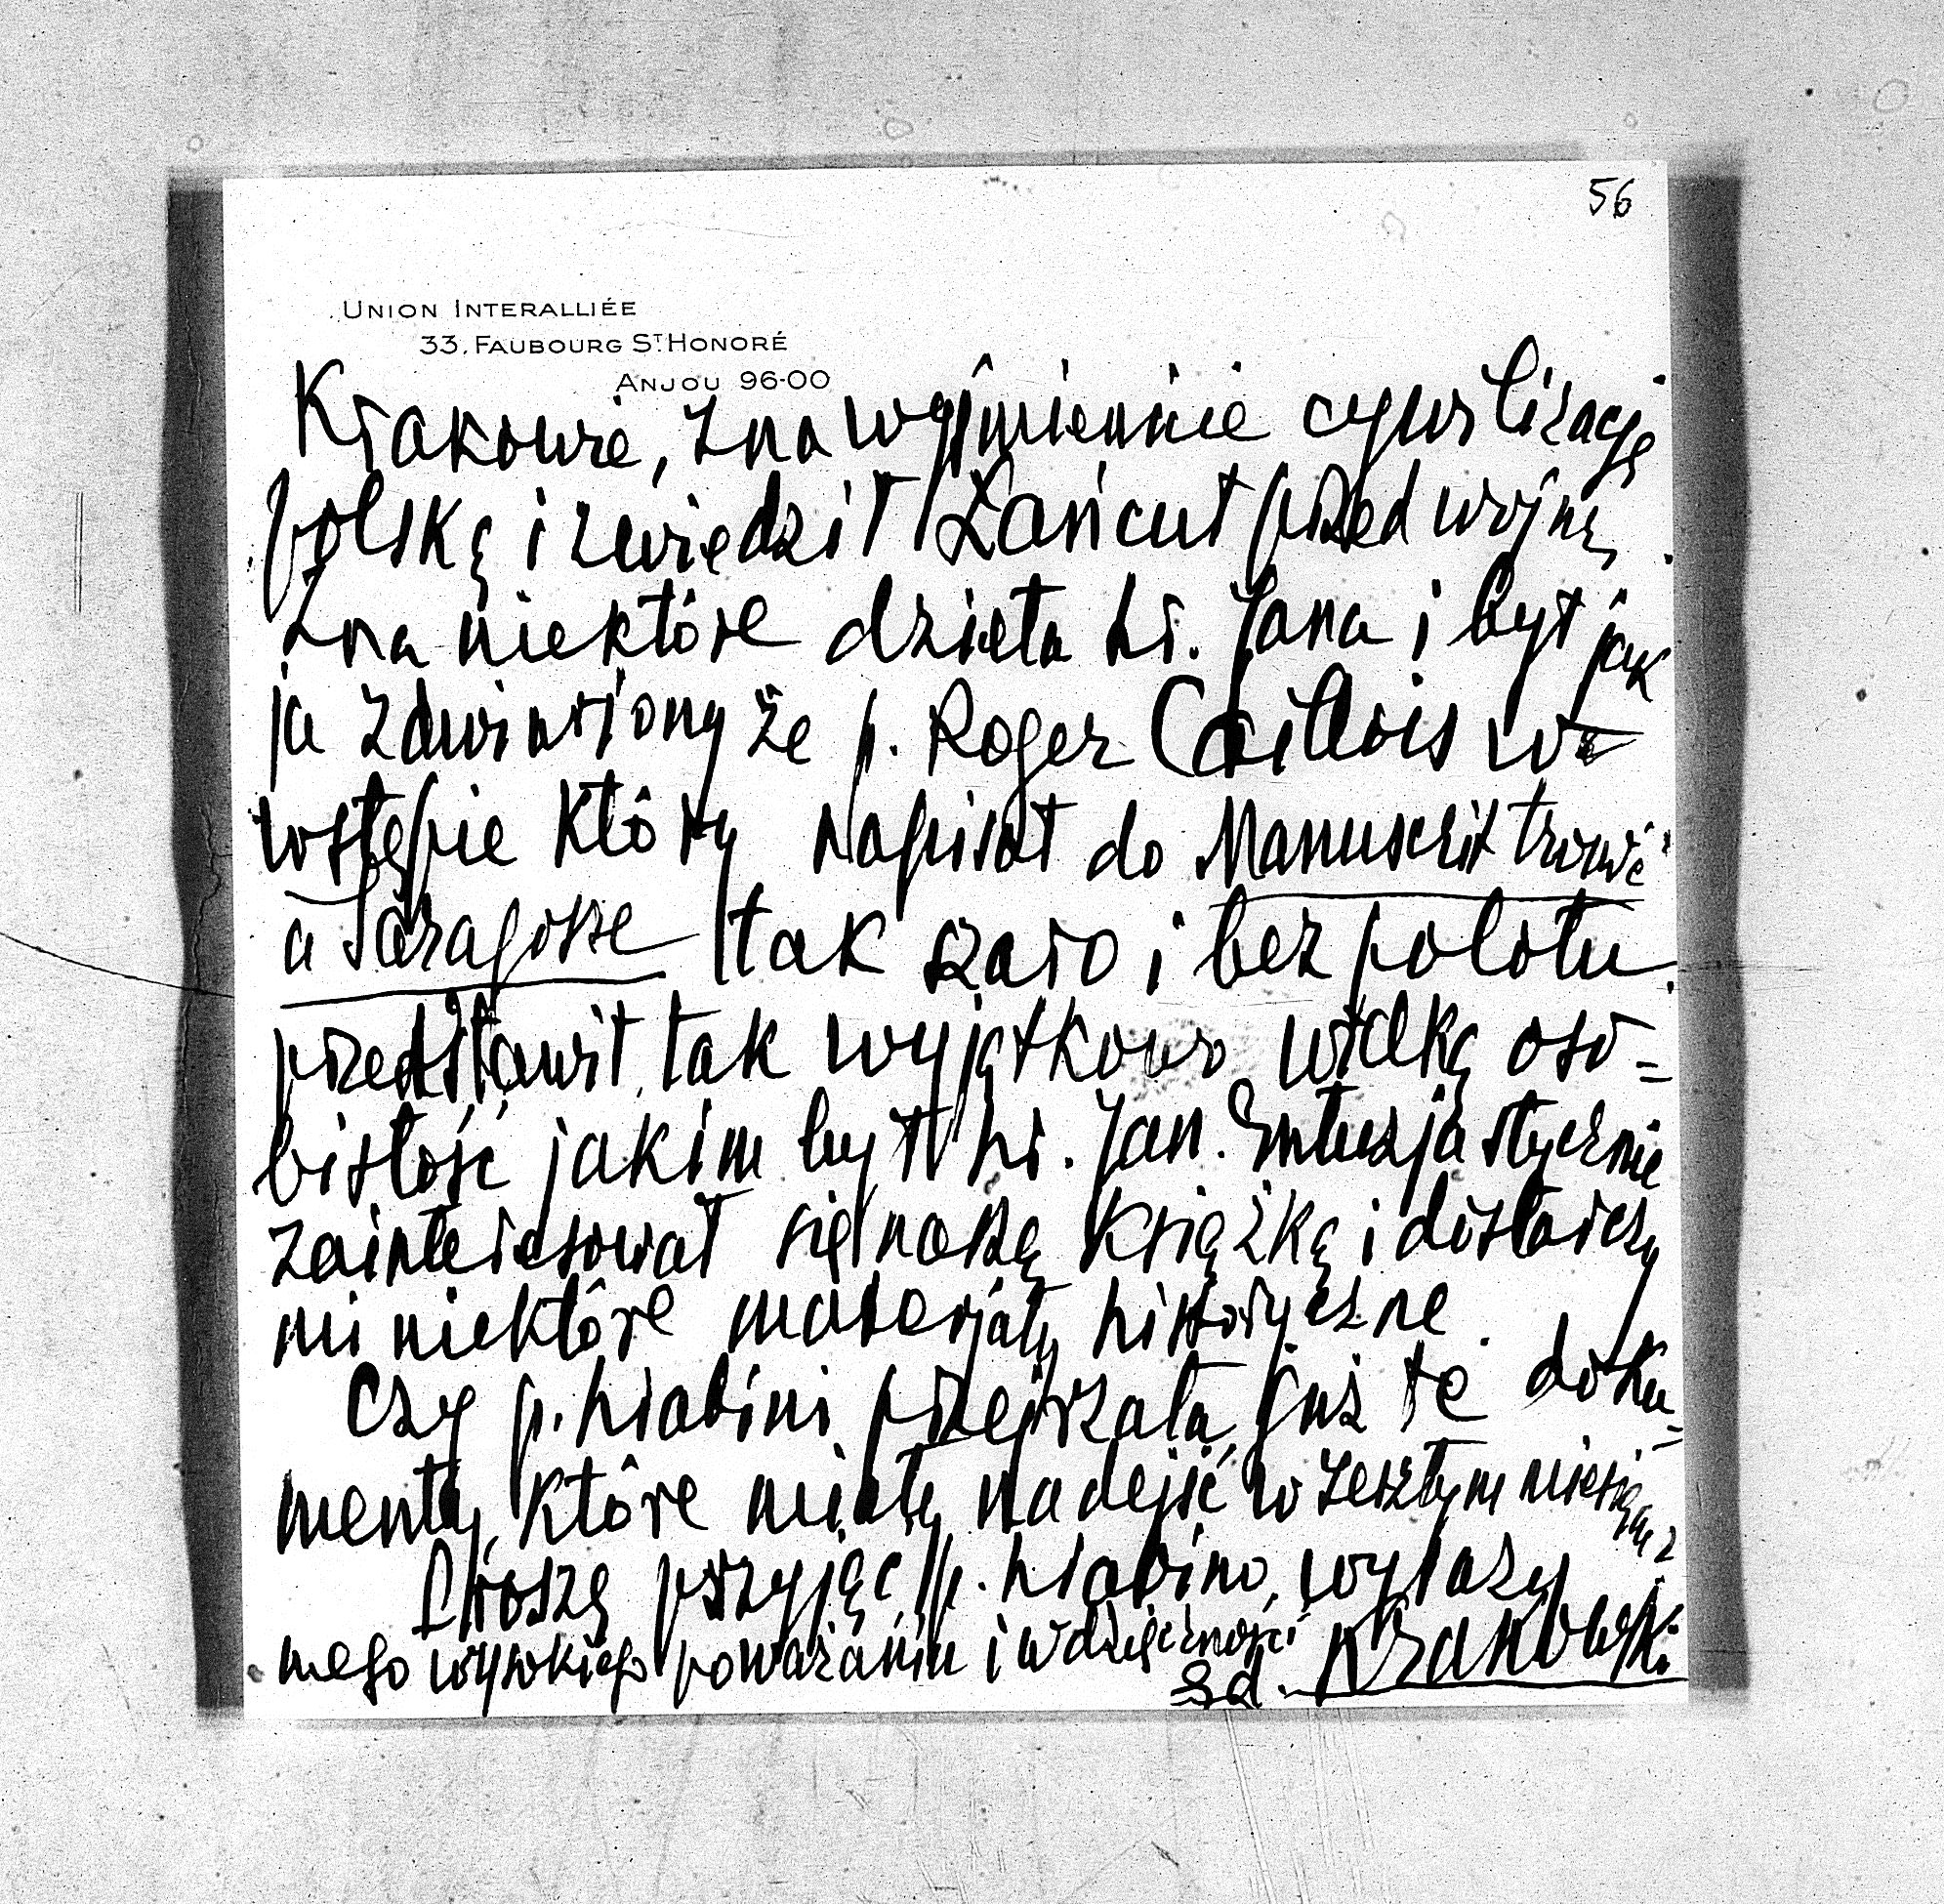 56
UNION INTERALLIÉE
33, FAUBOURG ST. HONORÉ
ANJOU 96-00
Krakowie, zna wyśmienicie cywilizację
polską i zwiedził Łańcut przed wojną,
zna niektóre dzieła hr. Jana i był jak
ja zdziwiony że p. Roger Caillois w
wstępie który napisał do Manuscrit trouvé
a Saragosse tak szaro i bez polotu
przedstawił tak wyjątkowo wielką oso=
bistość jakim był hr. Jan. Entuzjastycznie
zainteresował się naszą książką i dostarczy
mi niektóre materjały historyczne.
Czy p. hrabini przejrzała już te doku=
menty, które miały nadejść w zeszłym miesiącu?
Proszę przyjąć p. hrabino, wyrazy
mego wysokiego poważania i wdzięczności
Ed. Krakowski